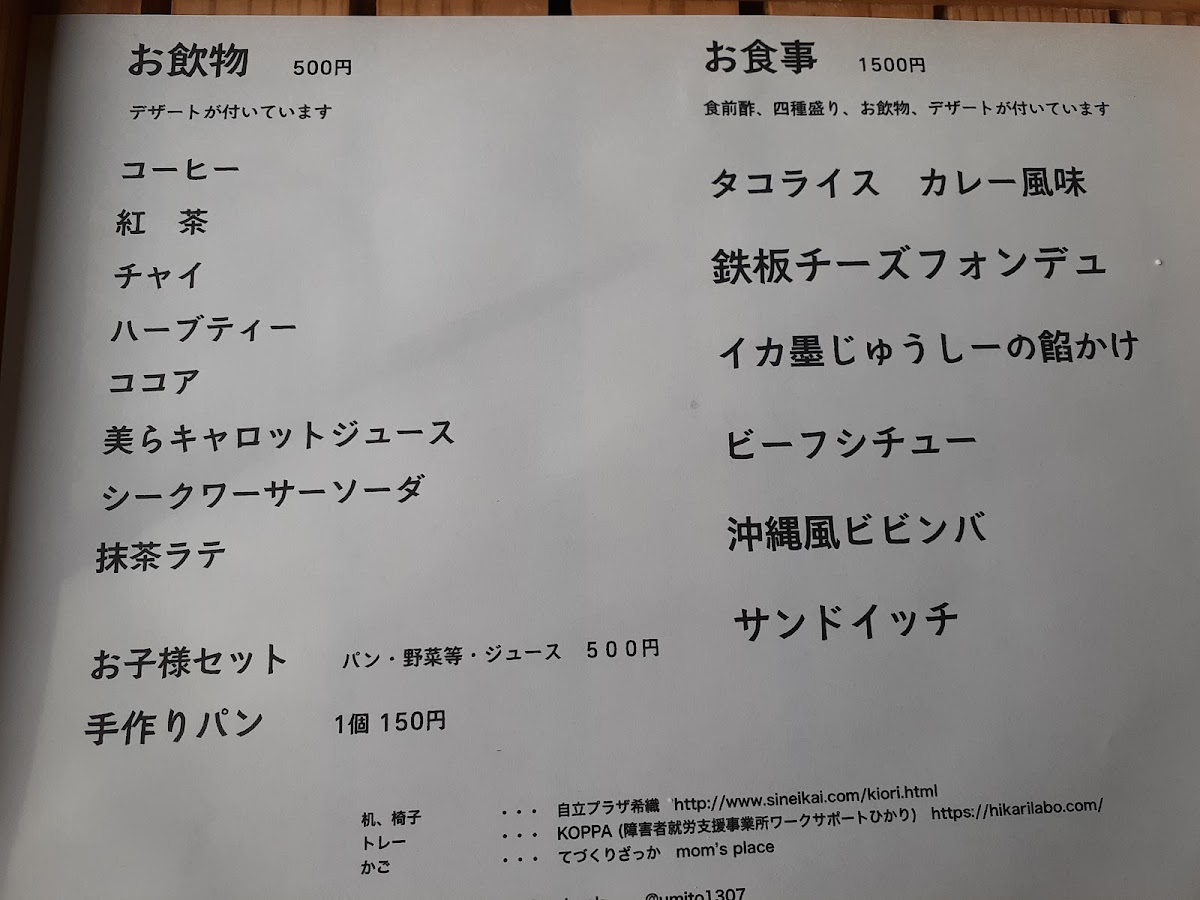 お飲物 500円
デザートが付いています
コーヒー
紅 茶
チャイ
ハーブティー
ココア
美らキャロットジュース
シークワーサーソーダ
抹茶ラテ
お子様セット パン・野菜等・ジュース 500円
手作りパン 1個 150円
お食事 1500円
食前酢、四種盛り、お飲物、デザートが付いています
タコライス カレー風味
鉄板チーズフォンデュ
イカ墨じゅうしーの餡かけ
ビーフシチュー
沖縄風ビビンバ
サンドイッチ
机、椅子 ・・・ 自立プラザ希織 http://www.sineikai.com/kiori.html
トレー ・・・ KOPPA (障害者就労支援事業所ワークサポートひかり) https://hikarilabo.com/
かご ・・・ てづくりざっか mom's place
@umito1307